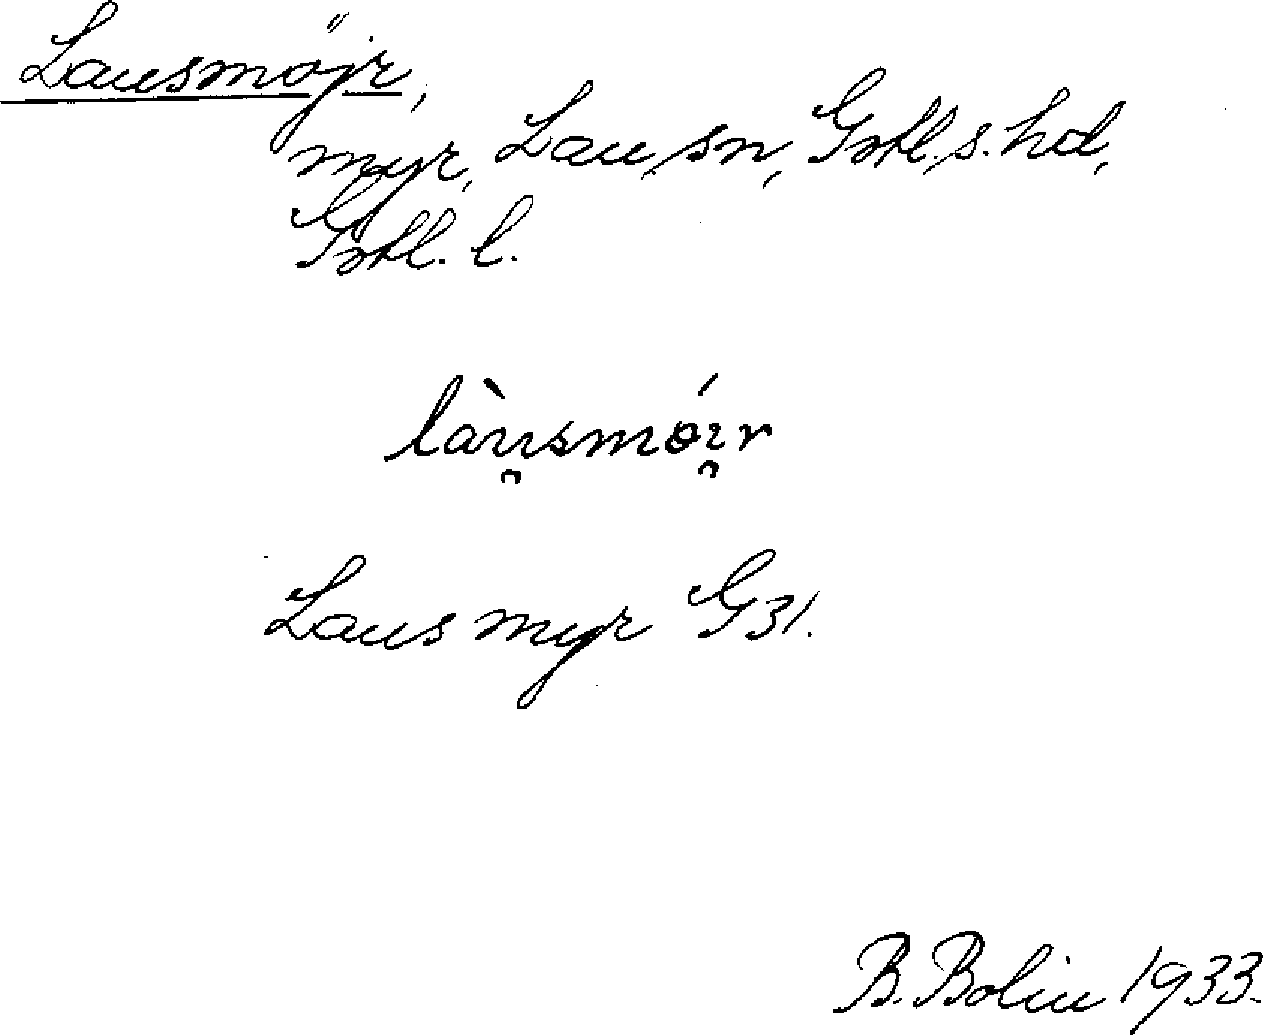 Lausmöjr,
myr, Lau sn, Gotl. s. hd,
Gotl. l.
làu̯smói̯r
Lausmyr G31.
B. Bolin 1933.